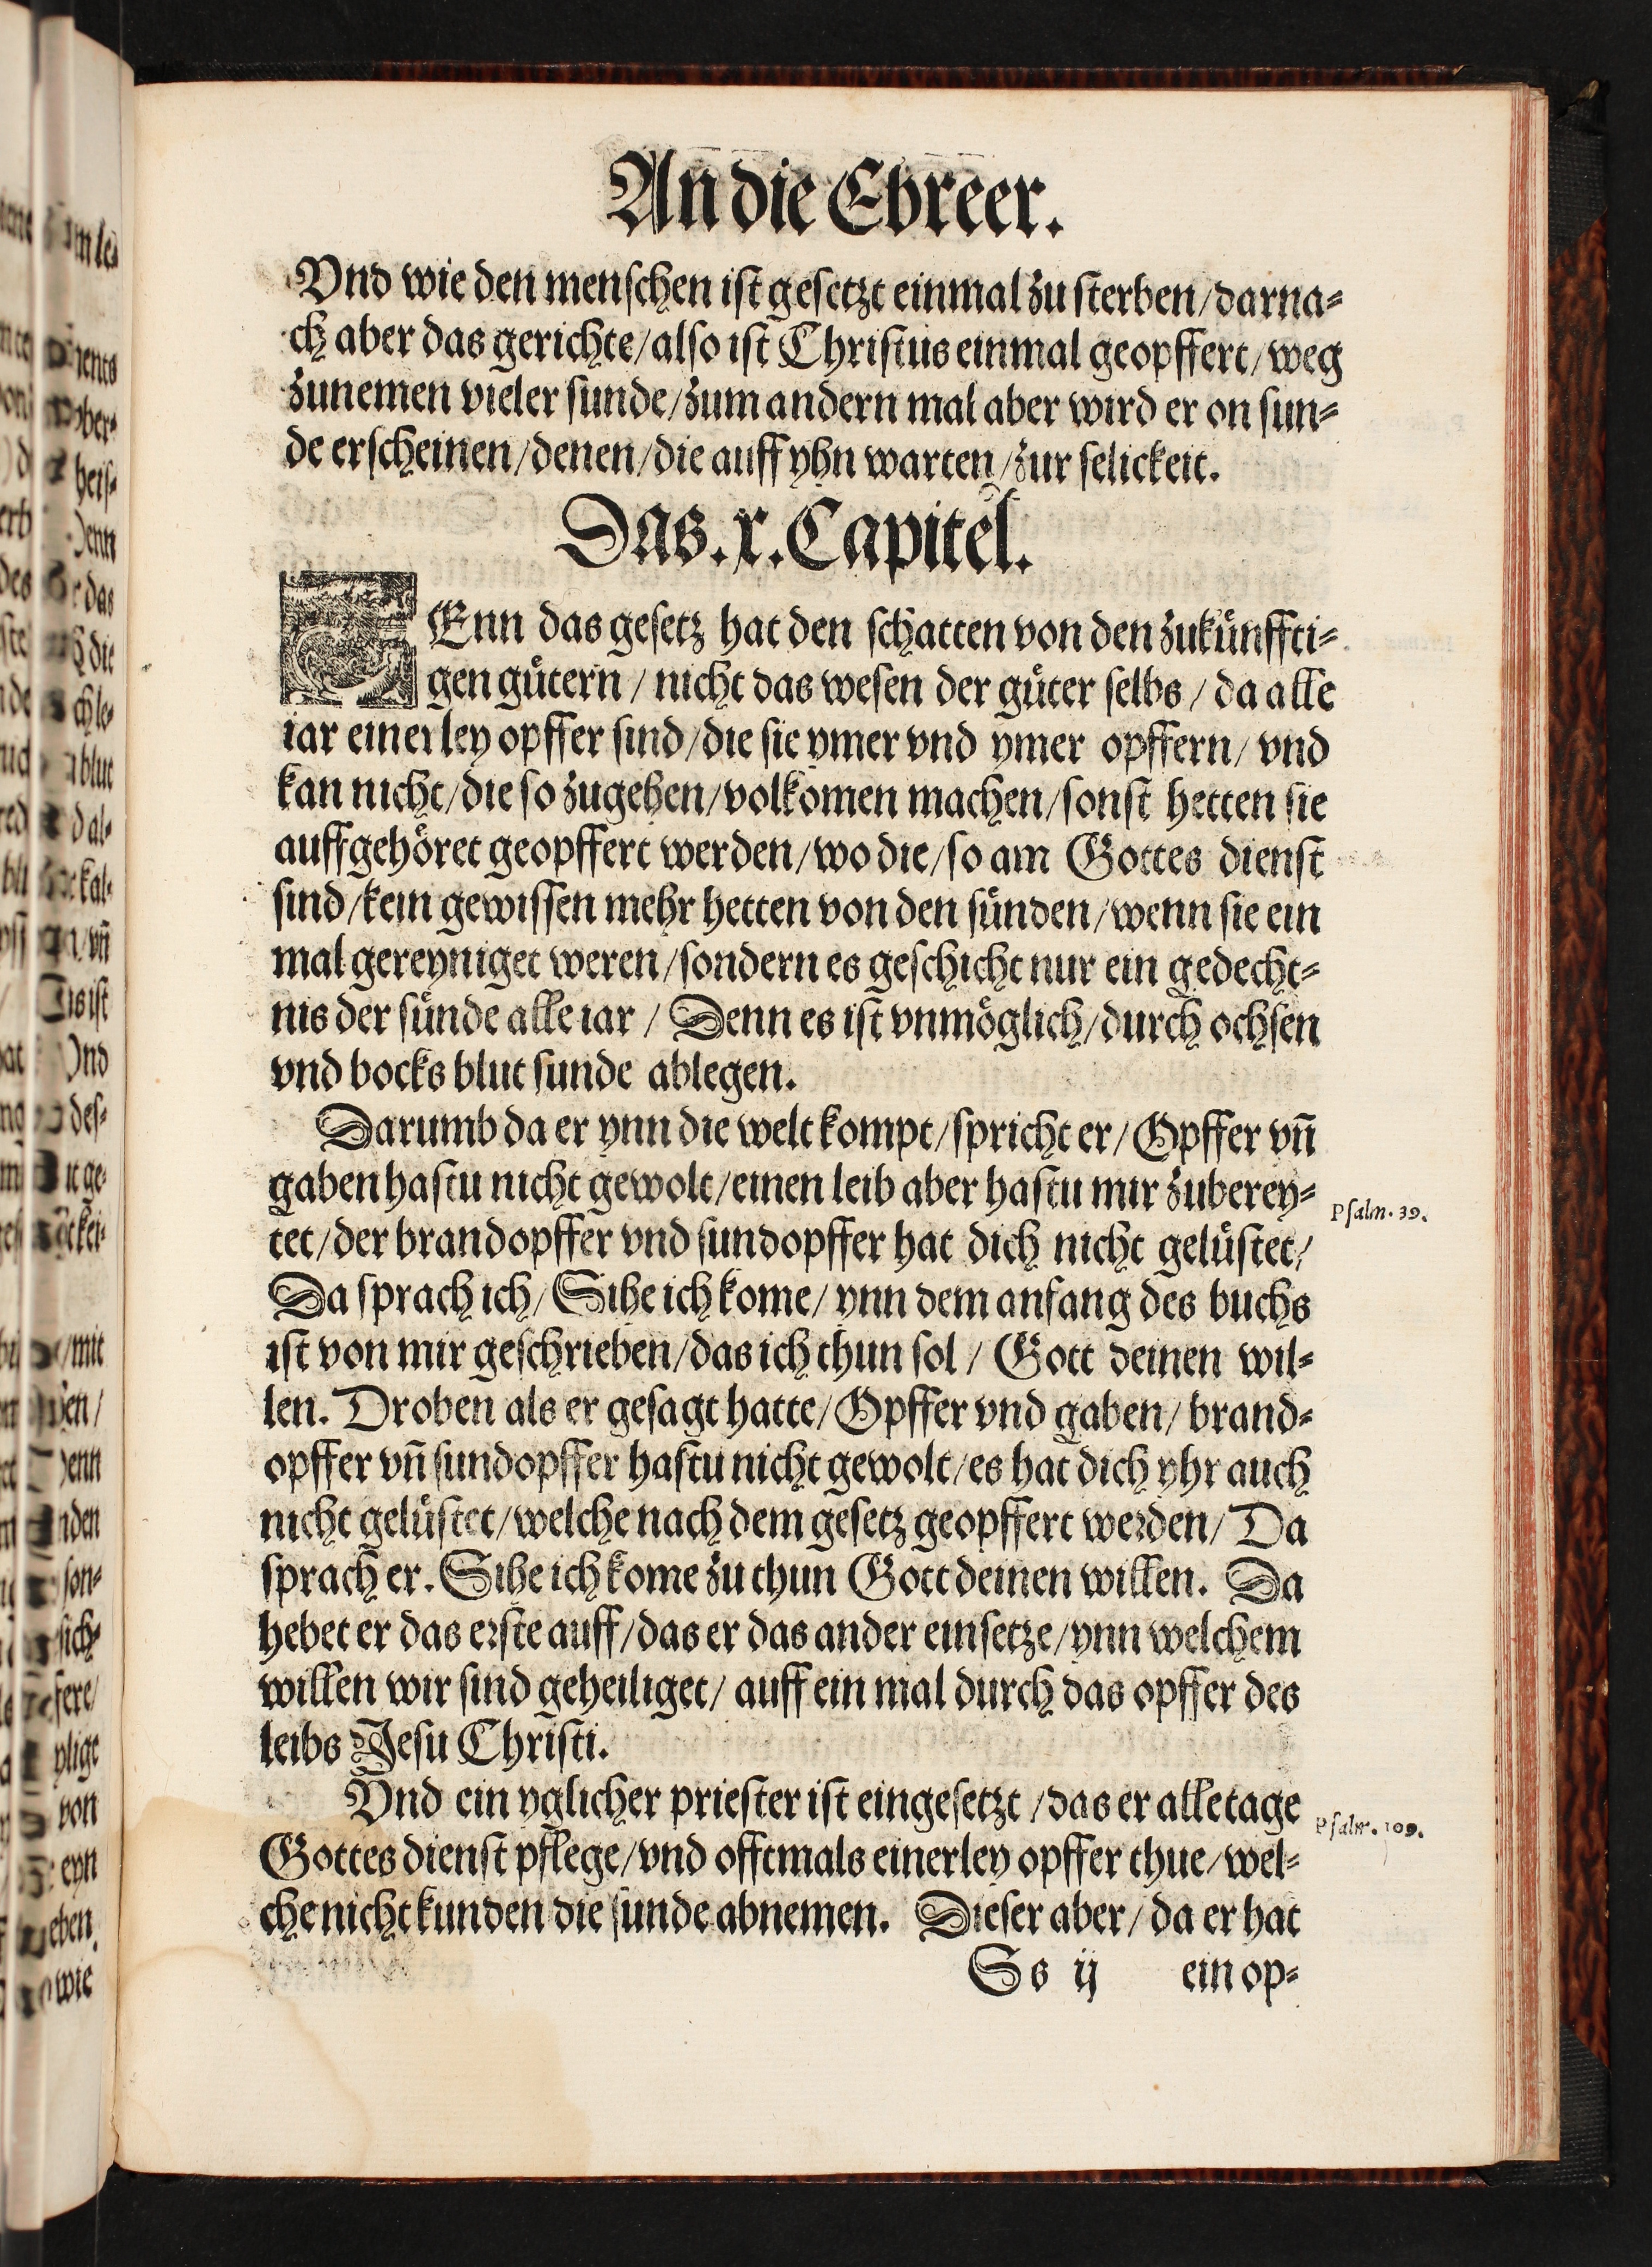 An die Ebreer.
Vnd wie den menſchen iſt geſetzt einmal zu ſterben/darna⸗
ch aber das gerichte/alſo iſt Chriſtus einmal geopffert/weg
zunemen vieler ſunde/zum andern mal aber wird er on ſun⸗
de erſcheinen/denen/die auff yhn warten/zur ſelickeit.
Das. x. Capitel.
DEnn das geſetz hat den ſchatten von den zukuͤnffti⸗
gen guͤtern / nicht das weſen der guͤter ſelbs / da alle
iar einerley opffer ſind/die ſie ymer vnd ymer opffern/ vnd
kan nicht/die ſo zugehen/volkomen machen/ſonſt hetten ſie
auffgehoͤret geopffert werden/wo die/ſo am Gottes dienſt
ſind/kein gewiſſen mehr hetten von den ſuͤnden/wenn ſie ein
mal gereyniget weren/ſondern es geſchicht nur ein gedecht⸗
nis der ſuͤnde alle iar / Denn es iſt vnmoͤglich/durch ochſen
vnd bocks blut ſunde ablegen.
Darumb da er ynn die welt kompt/ſpricht er/Opffer vñ
gaben haſtu nicht gewolt/einen leib aber haſtu mir zuberey⸗
Pſalm. 39.
tet/der brandopffer vnd ſundopffer hat dich nicht geluͤſtet/
Da ſprach ich/Sihe ich kome/ynn dem anfang des buchs
iſt von mir geſchrieben/das ich thun ſol / Gott deinen wil⸗
len. Droben als er geſagt hatte/Opffer vnd gaben/ brand⸗
opffer vñ ſundopffer haſtu nicht gewolt/es hat dich yhr auch
nicht geluͤſtet/welche nach dem geſetz geopffert werden/ Da
ſprach er. Sihe ich kome zu thun Gott deinen willen. Da
hebet er das erſte auff/das er das ander einſetze/ynn welchem
willen wir ſind geheiliget/ auff ein mal durch das opffer des
leibs Jeſu Chriſti.
Vnd ein yglicher prieſter iſt eingeſetzt /das er alle tage
Pſalm. 109.
Gottes dienſt pflege/vnd offtmals einerley opffer thue/wel⸗
che nicht kunden die ſunde abnemen. Dieſer aber/da er hat
Ss ij ein op⸗